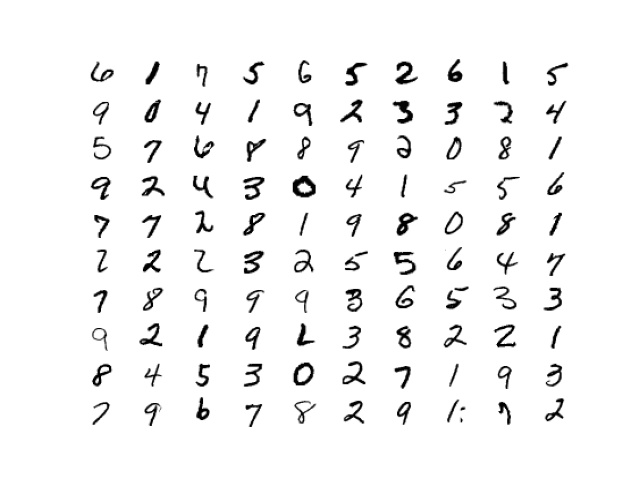 6 1 7 5 6 5 2 6 1 5
9 0 4 1 9 2 3 3 2 4
5 7 6 8 8 9 2 0 8 1
9 2 4 3 0 4 1 5 5 6
7 7 2 8 1 9 8 0 8 1
2 2 2 3 2 5 5 6 4 7
7 8 9 9 9 3 6 5 3 3
9 2 1 9 L 3 8 2 2 1
8 4 5 3 0 2 7 1 9 3
7 9 6 7 8 2 9 1: 7 2